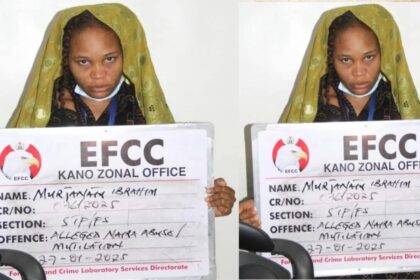 EFCC
KANO ZONAL OFFICE
NAME: MURJANATU IBRAHIM
CR/NO: 2025
SECTION: SIP/FS
OFFENCE: ALLEGED NAIRA ABUSE/
MUTILATION
27-01-2025
and Crime Laboratory Services Directorate
EFCC
KANO ZONAL OFFICE
NAME. MURJANATU IBRAHIM
CR/NO: 2025
SECTION: SIP/FS
OFFENCE: ALLEGED NAIRA ABUSE/
MUTILATION
27-01-2025
and Crime Laboratory Services Directorate